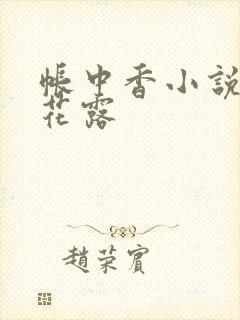 帳中香小說
花露
趙荣賓